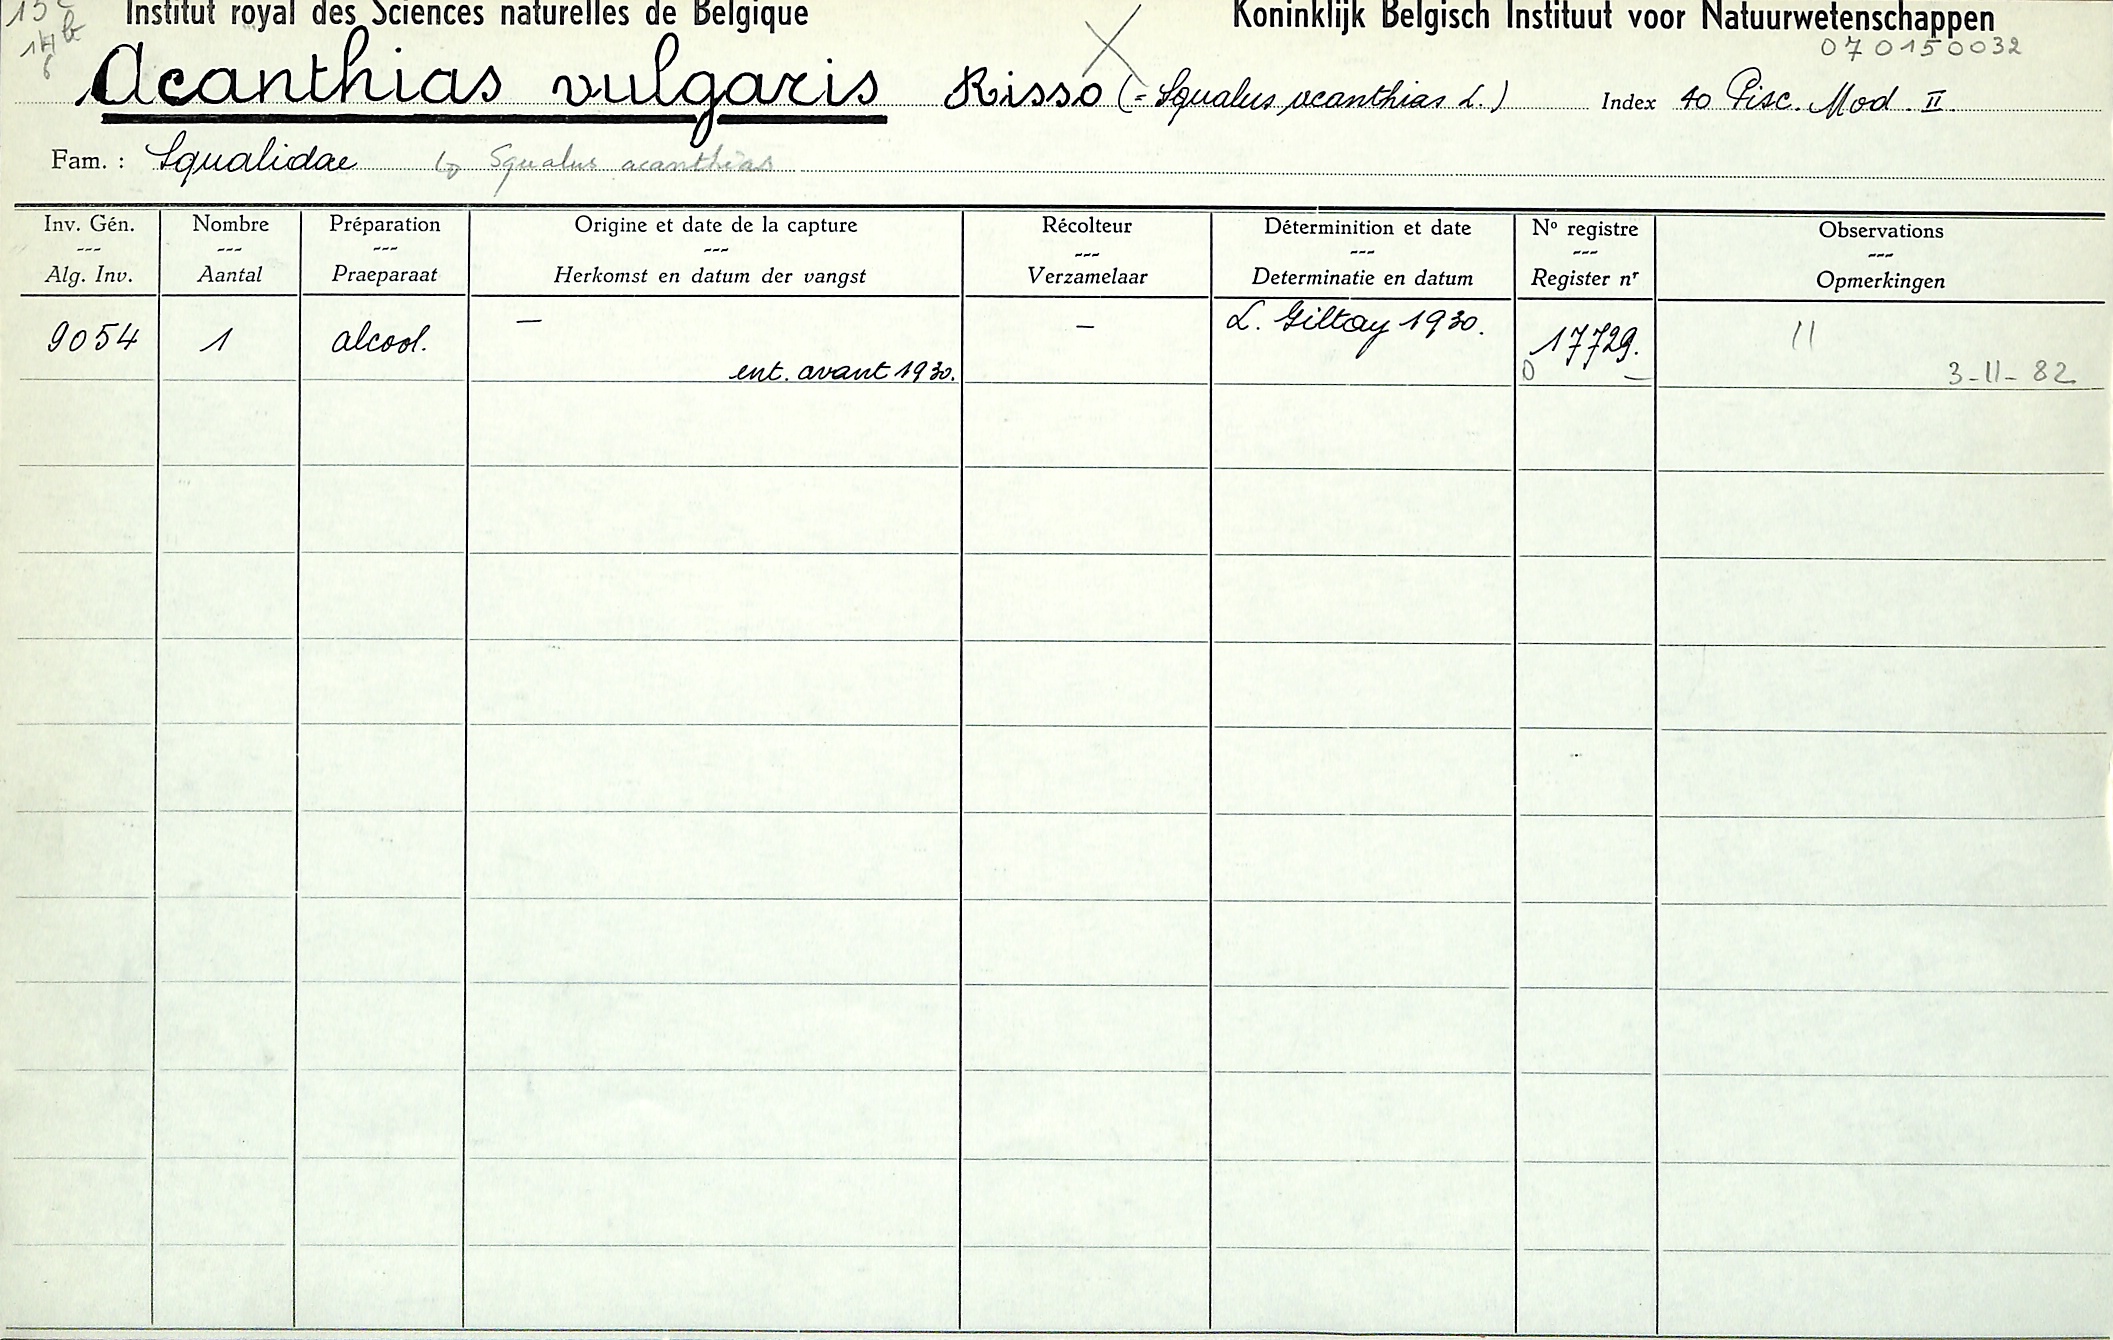 Institut royal des Sciences naturelles de Belgique Koninklijk Belgisch Instituut voor Natuurwetenschappen
070150032
Acanthias vulgaris Risso (= Squalus acanthias L.) Index 40 Pisc. Mod. II
Fam. : Squalidae Squalus acanthias
Inv. Gén. Nombre Préparation Origine et date de la capture Récolteur Déterminition et date No registre Observations
--- --- --- --- --- --- --- ---
Alg. Inv. Aantal Praeparaat Herkomst en datum der vangst Verzamelaar Determinatie en datum Register nr Opmerkingen
9054 1 alcool. — — L. Giltay 1930. 17729. 11
ent. avant 1930. 0 — 3-11-82